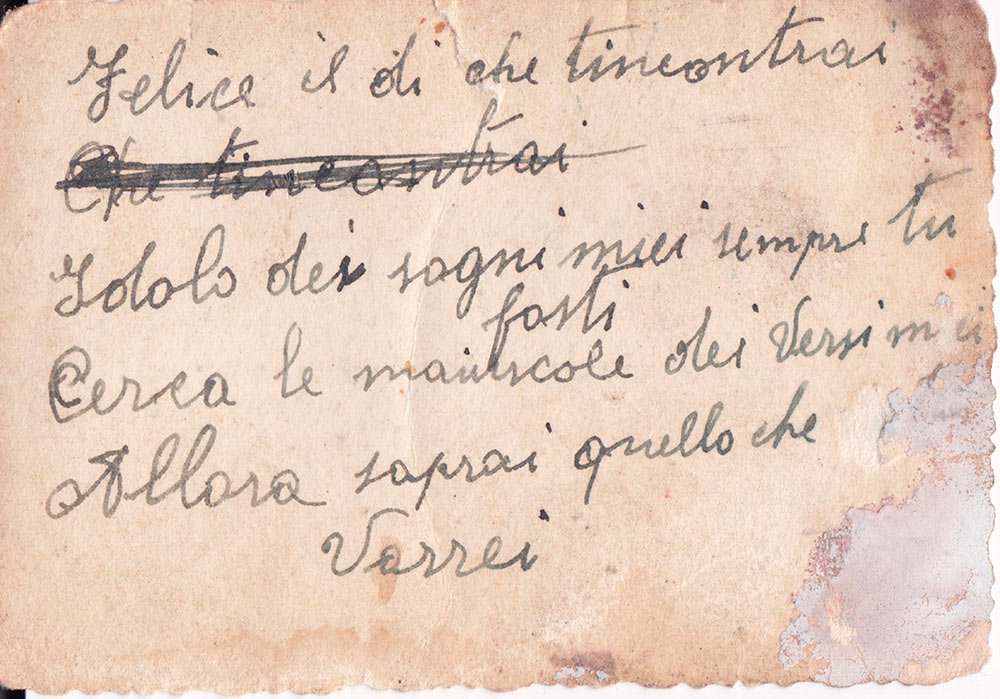 Felice il di che tincontrai
Che tincontrai
Idolo dei sogni miei sempre tu
fosti
Cerca le maiuscole dei Versi miei
Allora saprai quello che
Vorrei